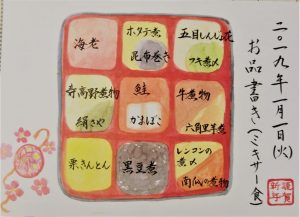 二〇一九年一月一日(火)
お品書き(ミキサー食)
海老
ホタテ煮
昆布巻き
五目しんじょ花
フキ煮〆
寺高野煮物
絹さや
鮭
かまぼこ
牛煮物
六角里芋煮
栗きんとん
黒豆煮
レンコンの
煮〆
南瓜の煮物
謹賀
新年